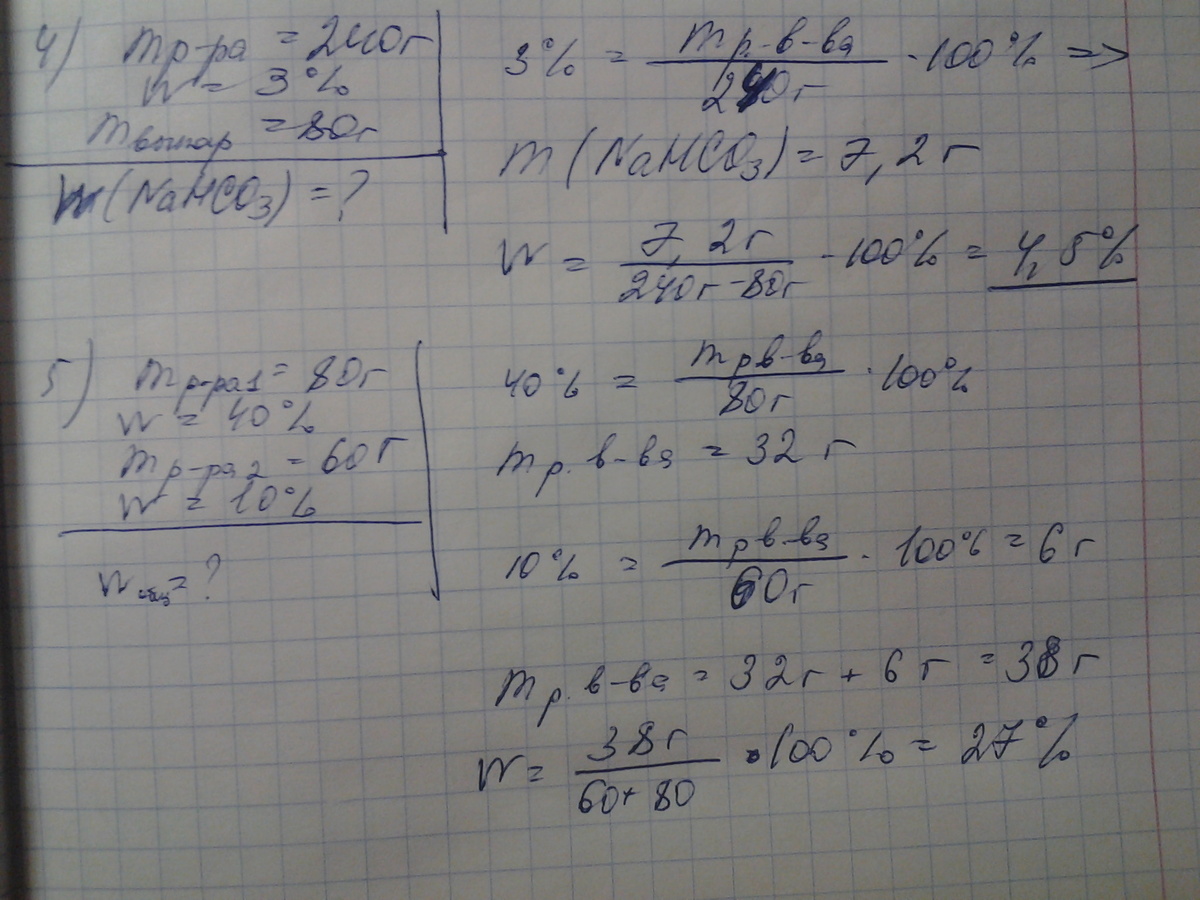 4) m р-ра = 240г
w = 3%
m выпар = 80г
w(NaHCO3) = ?
3% = m р.-в-ва / 240г · 100% =>
m(NaHCO3) = 7,2г
w = 7,2г / 240г - 80г · 100% = 4,5%
5) m р-ра1 = 80г
w = 40%
m р-ра2 = 60г
w = 10%
w общ = ?
40% = m р в-ва / 80г · 100%
m р. в-ва = 32 г
10% = m р в-ва / 60г · 100% = 6 г
m р. в-ва = 32г + 6 г = 38 г
w = 38г / 60+80 · 100% = 27%